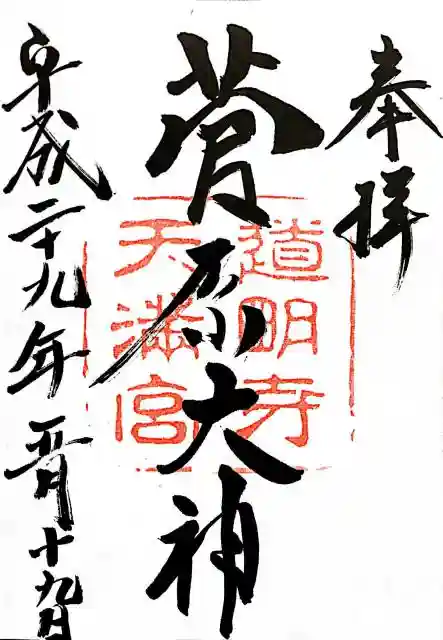 奉拝
菅原大神
道明寺
天満宮
平成二十九年 月十九日